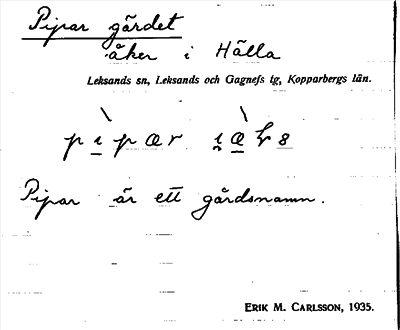 Pipar gärdet
åker i Hälla
Leksands sn, Leksands och Gagnefs tg, Kopparbergs län.
Pipar är ett gårdsnamn.
ERIK M. CARLSSON, 1935.